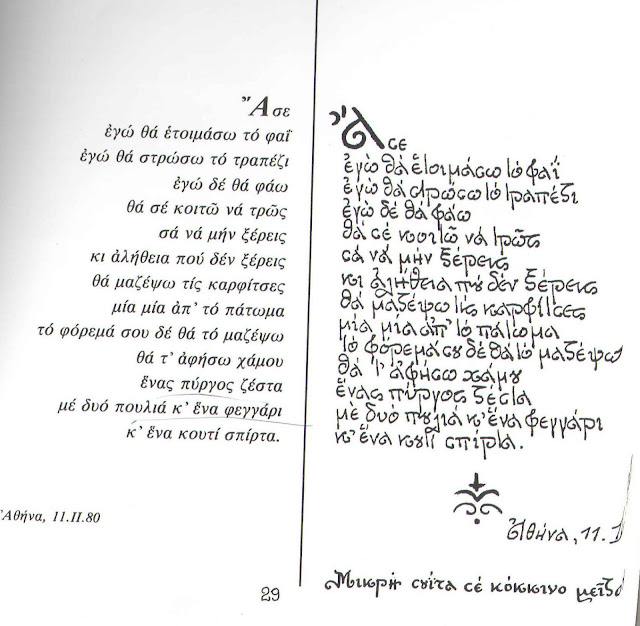 Ἄσε
ἐγώ θά ἑτοιμάσω τό φαΐ
ἐγώ θά στρώσω τό τραπέζι
ἐγώ δέ θά φάω
θά σέ κοιτῶ νά τρῶς
σά νά μήν ξέρεις
κι ἀλήθεια πού δέν ξέρεις
θά μαζέψω τίς καρφίτσες
μία μία ἀπ' τό πάτωμα
τό φόρεμά σου δέ θά τό μαζέψω
θά τ' ἀφήσω χάμου
ἕνας πύργος ζέστα
μέ δυό πουλιά κ' ἕνα φεγγάρι
κ' ἕνα κουτί σπίρτα.
Ἀθήνα, 11.II.80
29
Ἄσε
ἐγὼ θὰ ἑτοιμάσω τὸ φαΐ
ἐγὼ θὰ στρώσω τὸ τραπέζι
ἐγὼ δέ θά φάω
θά σέ κοιτῶ νά τρῶς
σά νά μήν ξέρεις
κι ἀλήθεια ποὺ δέν ξέρεις
θά μαζέψω τὶς καρφίτσες
μία μία ἀπ' τὸ πάτωμα
τὸ φόρεμά σου δέ θά τὸ μαζέψω
θά τ' ἀφήσω χάμου
ἕνας πύργος ζέστα
μὲ δυό πουλιά κ' ἕνα φεγγάρι
κ' ἕνα κουτὶ σπίρτα.
Ἀθήνα, 11.
Μικρὴ σουίτα σέ κόκκινο